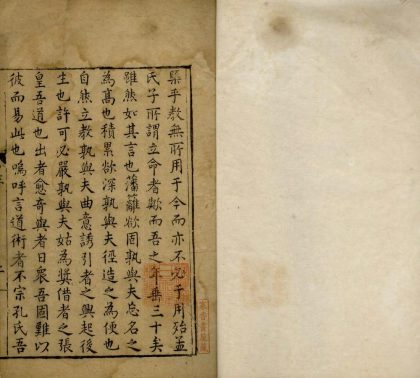 槩乎教無所用于今而亦不必于用殆孟
氏子所謂立命者歟而吾之年垂三十矣
雖然如其言也藩籬欲固孰與夫忘名之
為寓也積累欲深孰與夫徑造之為便也
自然立教孰與夫曲意誘引者之興起後
生也許可必嚴孰與夫姑為奨借者之張
皇吾道也出者愈奇與者日眾吾固難以
彼而易此也嗚呼言道術者不宗孔氏吾